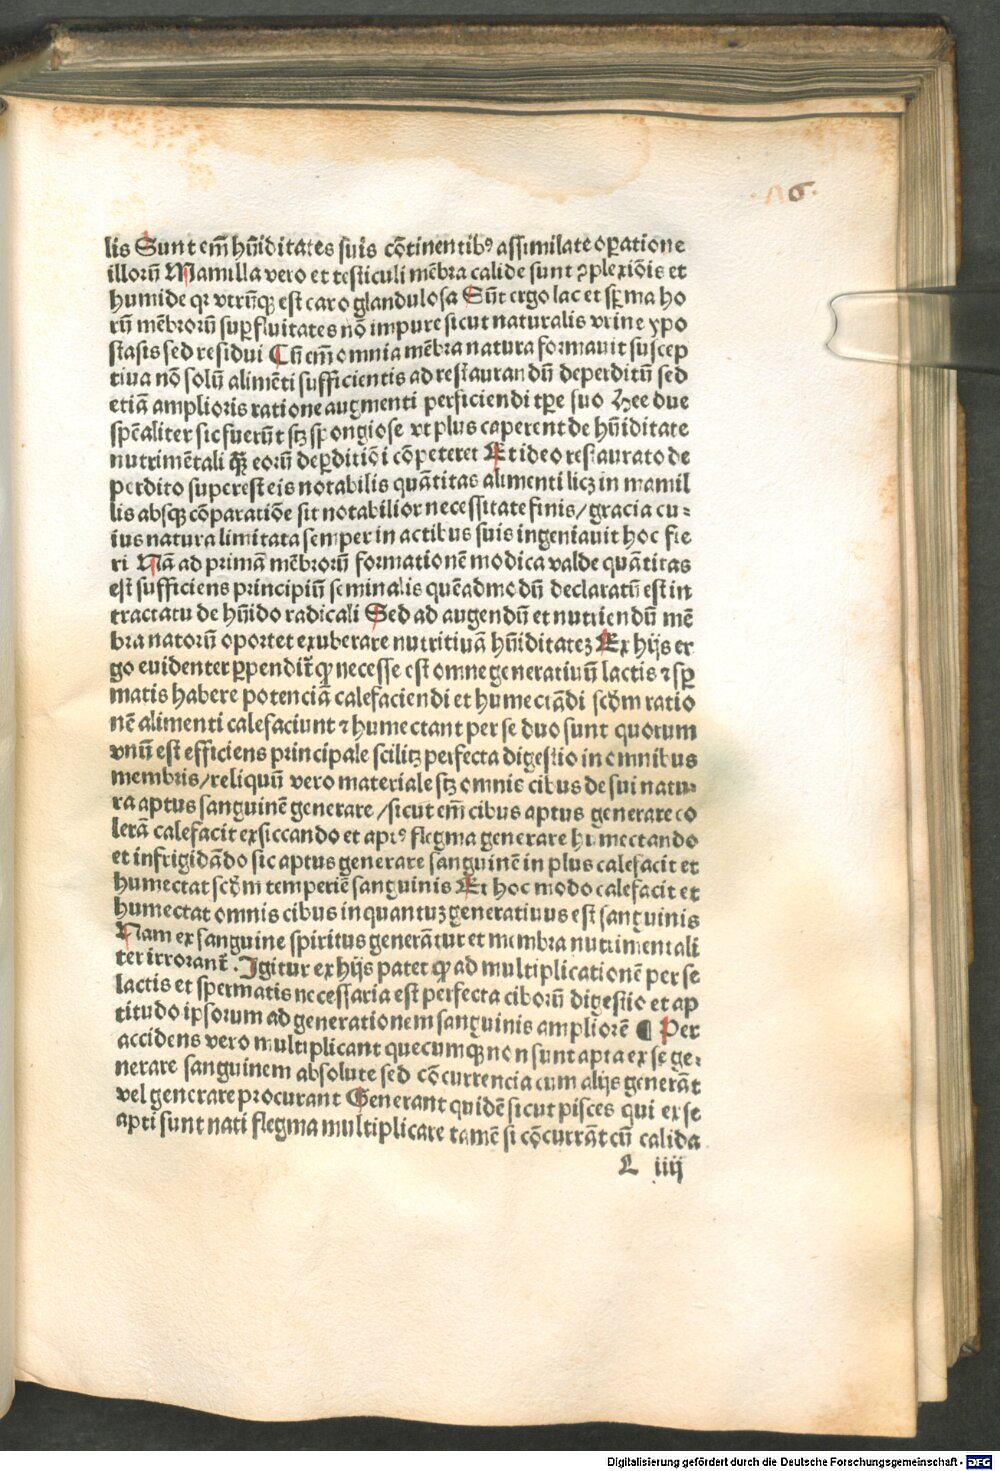 lis Sunt em̄ hūiditates suis cōtinentibꝰ assimilate oꝑatione
illorū Mamilla vero et testiculi mēbra calide sunt ꝯplexiōis et
humide qꝛ vtrūqꝫ est caro glandulosa Sūt ergo lac et sꝑma ho
rū mēbrorū suꝑfluitates nō impure sicut naturalis vrine ypo
stasis sed residui Cū em̄ omnia mēbra natura formauit suscep
tiua nō solū alimēti sufficientis ad restaurandū deperditū sed
etiā amplioris ratione augmenti perficiendi tꝑe suo Hee due
spēaliter sic fuerūt sꝫ spongiose vt plus caperent de hūiditate
nutrimētali ꝙ̄ eorū deꝑditiōi cōpeteret Et ideo restaurato de
perdito superest eis notabilis quātitas alimenti licꝫ in mamil
lis absqꝫ cōparatiōe sit notabilior necessitate finis/gracia cu⸗
ius natura limitata semper in actibus suis ingeniauit hoc fie
ri Nā ad primā mēbrorū formationē modica valde quātitas
est sufficiens principiū seminalis quēadmodū declaratū est in
tractatu de hūido radicali Sed ad augendū et nutriendū mē
bra natorū oportet exuberare nutritiuā hūiditateꝫ Ex hijs er
go euidenter ꝑpendit̄ ꝙ necesse est omne generatiuū lactis ⁊ sꝑ
matis habere potenciā calefaciendi et humectādi scd̄m ratio
nē alimenti calefaciunt ⁊ humectant per se duo sunt quorum
vnū est efficiens principale scilitꝫ perfecta digestio in omnibus
membris/reliquū vero materiale sꝫ omnis cibus de sui natu⸗
ra aptus sanguinē generare/sicut em̄ cibus aptus generare co
lerā calefacit exsiccando et aptꝰ flegma generare humectando
et infrigidādo sic aptus generare sanguinē in plus calefacit et
humectat scd̄m temperiē sanguinis Et hoc modo calefacit et
humectat omnis cibus inquantuꝫ generatiuus est sanguinis
Nam ex sanguine spiritus generātur et membra nutrimentali
ter irrorant̄. Igitur ex hijs patet ꝙ ad multiplicationē per se
lactis et spermatis necessaria est perfecta ciborū digestio et ap
titudo ipsorum ad generationem sanguinis ampliorē ¶ Per
accidens vero multiplicant quecumqꝫ non sunt apta ex se ge⸗
nerare sanguinem absolute sed cōcurrencia cum alijs generāt
vel generare procurant Generant quidē sicut pisces qui ex se
apti sunt nati flegma multiplicare tamē si cōcurrāt cū calida
L iiij
Digitalisierung gefördert durch die Deutsche Forschungsgemeinschaft - DFG